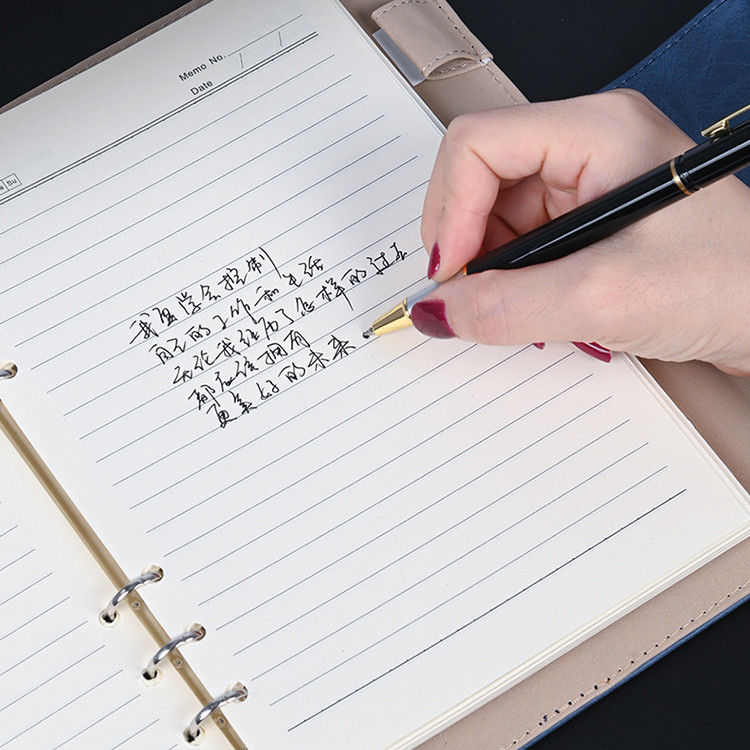 Memo No.
Date
Su
我要学会控制
自己的工作和生活
无论我经历了怎样的过去
都应该拥有
更美好的未来